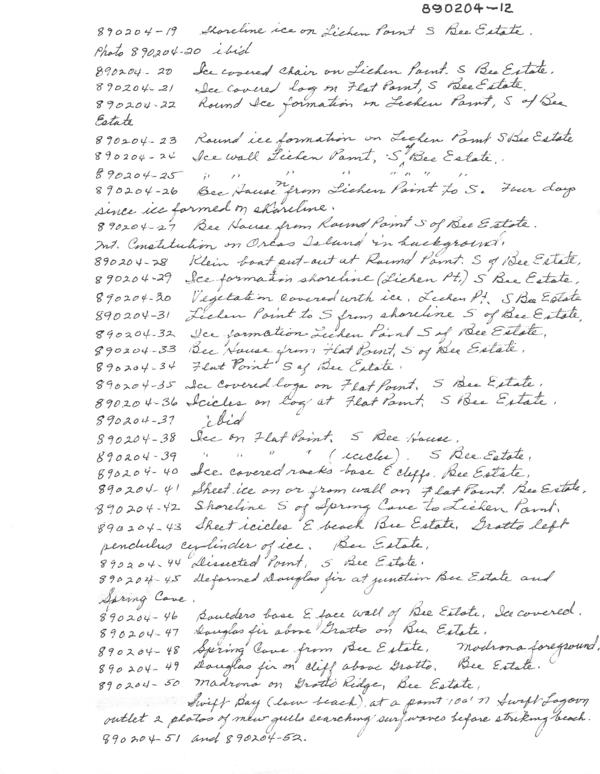 890204-12
890204-19 Shoreline ice on Lichen Point S Bee Estate.
Photo 890204-20 ibid
890204-20 Ice covered chair on Lichen Point. S Bee Estate.
890204-21 Ice covered log on Flat Point, S Bee Estate.
890204-22 Round Ice formation on Lichen Point, S of Bee
Estate
890204-23 Round ice formation on Lichen Point S Bee Estate
890204-24 Ice wall Lichen Point, S of Bee Estate.
890204-25 " " " " " " "
890204-26 Bee House from Lichen Point to S. Four days
since ice formed on shoreline.
890204-27 Bee House from Round Point S of Bee Estate.
Mt. Constitution on Orcas Island in background.
890204-28 Klein boat put-out at Round Point. S of Bee Estate,
890204-29 Ice formation shoreline (Lichen Pt.) S Bee Estate,
890204-30 Vegetation covered with ice. Lichen Pt. S Bee Estate
890204-31 Lichen Point to S from shoreline S of Bee Estate.
890204-32 Ice formation Lichen Point S of Bee Estate,
890204-33 Bee House from Flat Point, S of Bee Estate.
890204-34 Flat Point S of Bee Estate.
890204-35 Ice covered logs on Flat Point, S Bee Estate.
890204-36 Icicles on log at Flat Point, S Bee Estate.
890204-37 ibid
890204-38 Ice on Flat Point, S Bee House.
890204-39 " " " " (icicles). S Bee Estate,
890204-40 Ice covered rocks base E cliffs. Bee Estate,
890204-41 Sheet ice on or from wall on Flat Point. Bee Estate,
890204-42 Shoreline S of Spring Cove to Lichen Point,
890204-43 Sheet icicles E beach Bee Estate, Grotto left
pendulus cylinder of ice. Bee Estate,
890204-44 Disected Point, S Bee Estate.
890204-45 Deformed Douglas fir at junction Bee Estate and
Spring Cove.
890204-46 Boulders base E face wall of Bee Estate, Ice covered.
890204-47 Douglas fir above Grotto on Bee Estate.
890204-48 Spring Cove from Bee Estate, Madrona foreground,
890204-49 Douglas fir on cliff above Grotto. Bee Estate.
890204-50 Madrona on Grotto Ridge, Bee Estate,
Swift Bay (low beach) at a point 100' N Swift Lagoon
outlet 2 photos of mew gulls searching surf waves before striking beach.
890204-51 and 890204-52.